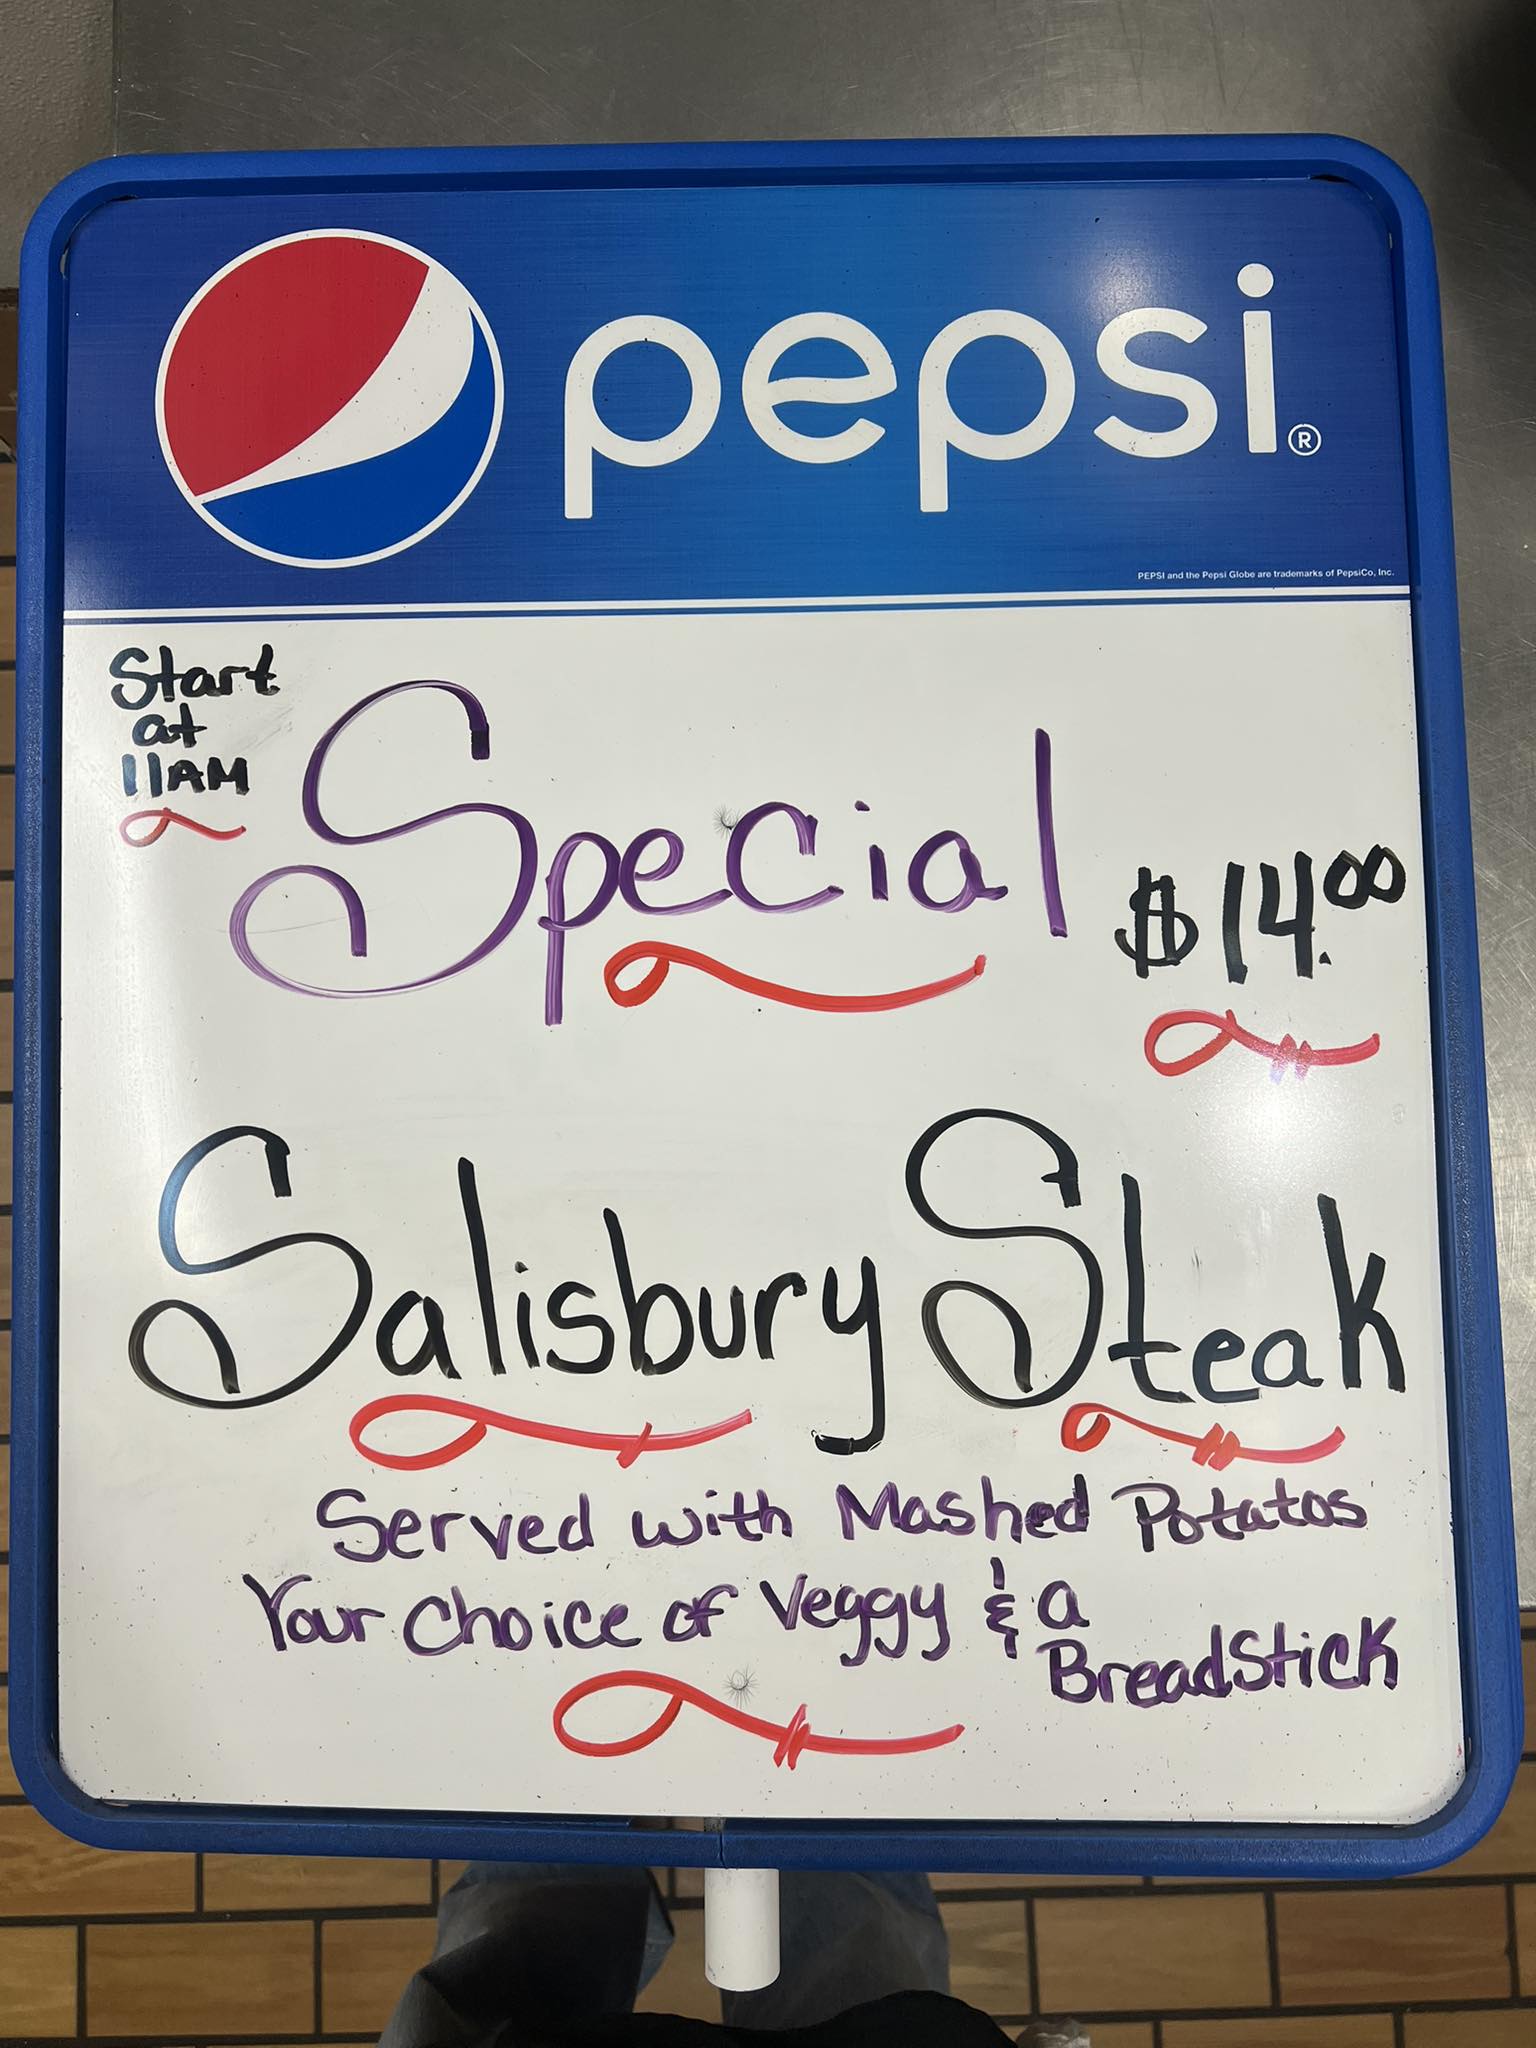 pepsi®
PEPSI and the Pepsi Globe are trademarks of PepsiCo, Inc.
Start
at
11AM
Special
$14.00
Salisbury Steak
Served with Mashed Potatos
Your Choice of Veggy & a
BreadStick